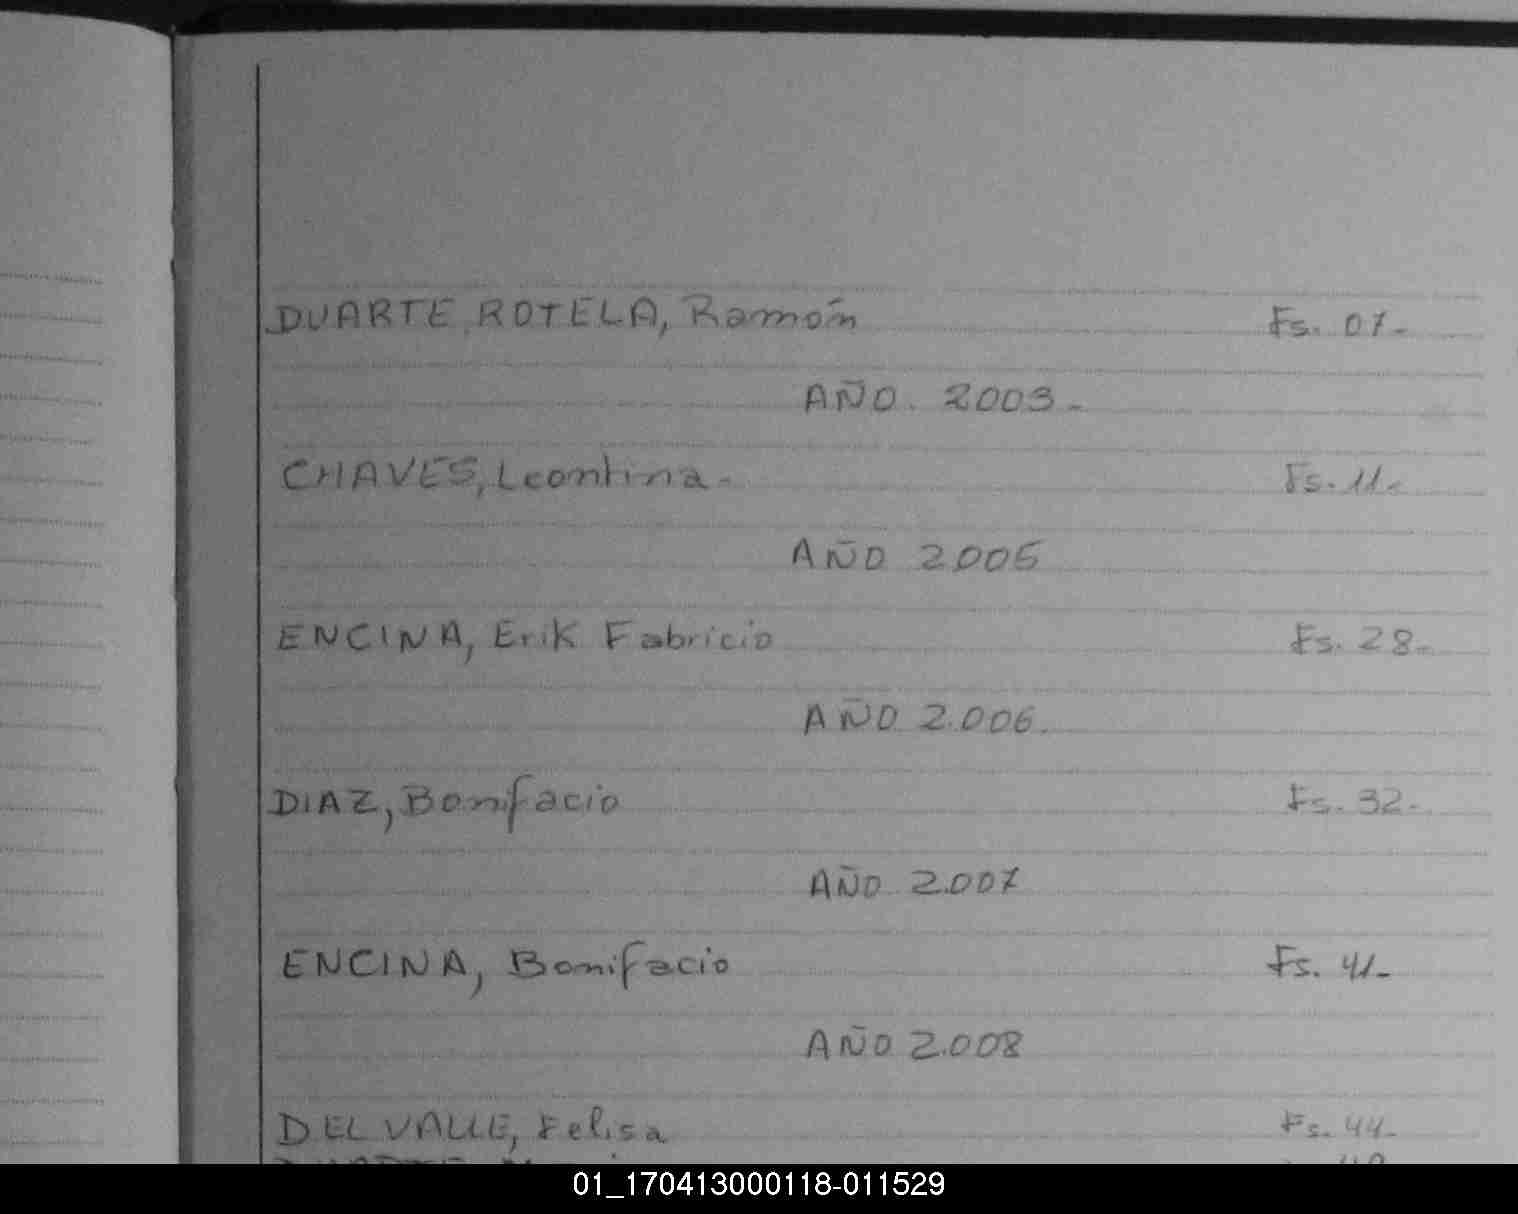 DUARTE ROTELA, Ramón Fs. 07-
AÑO. 2003-
CHAVES, Leontina- Fs. 11-
AÑO 2005
ENCINA, Erik Fabricio Fs. 28-
AÑO 2.006.
DIAZ, Bonifacio Fs. 32-
AÑO 2.007
ENCINA, Bonifacio Fs. 41-
AÑO 2.008
DEL VALLE, Felisa Fs. 44-
01_170413000118-011529